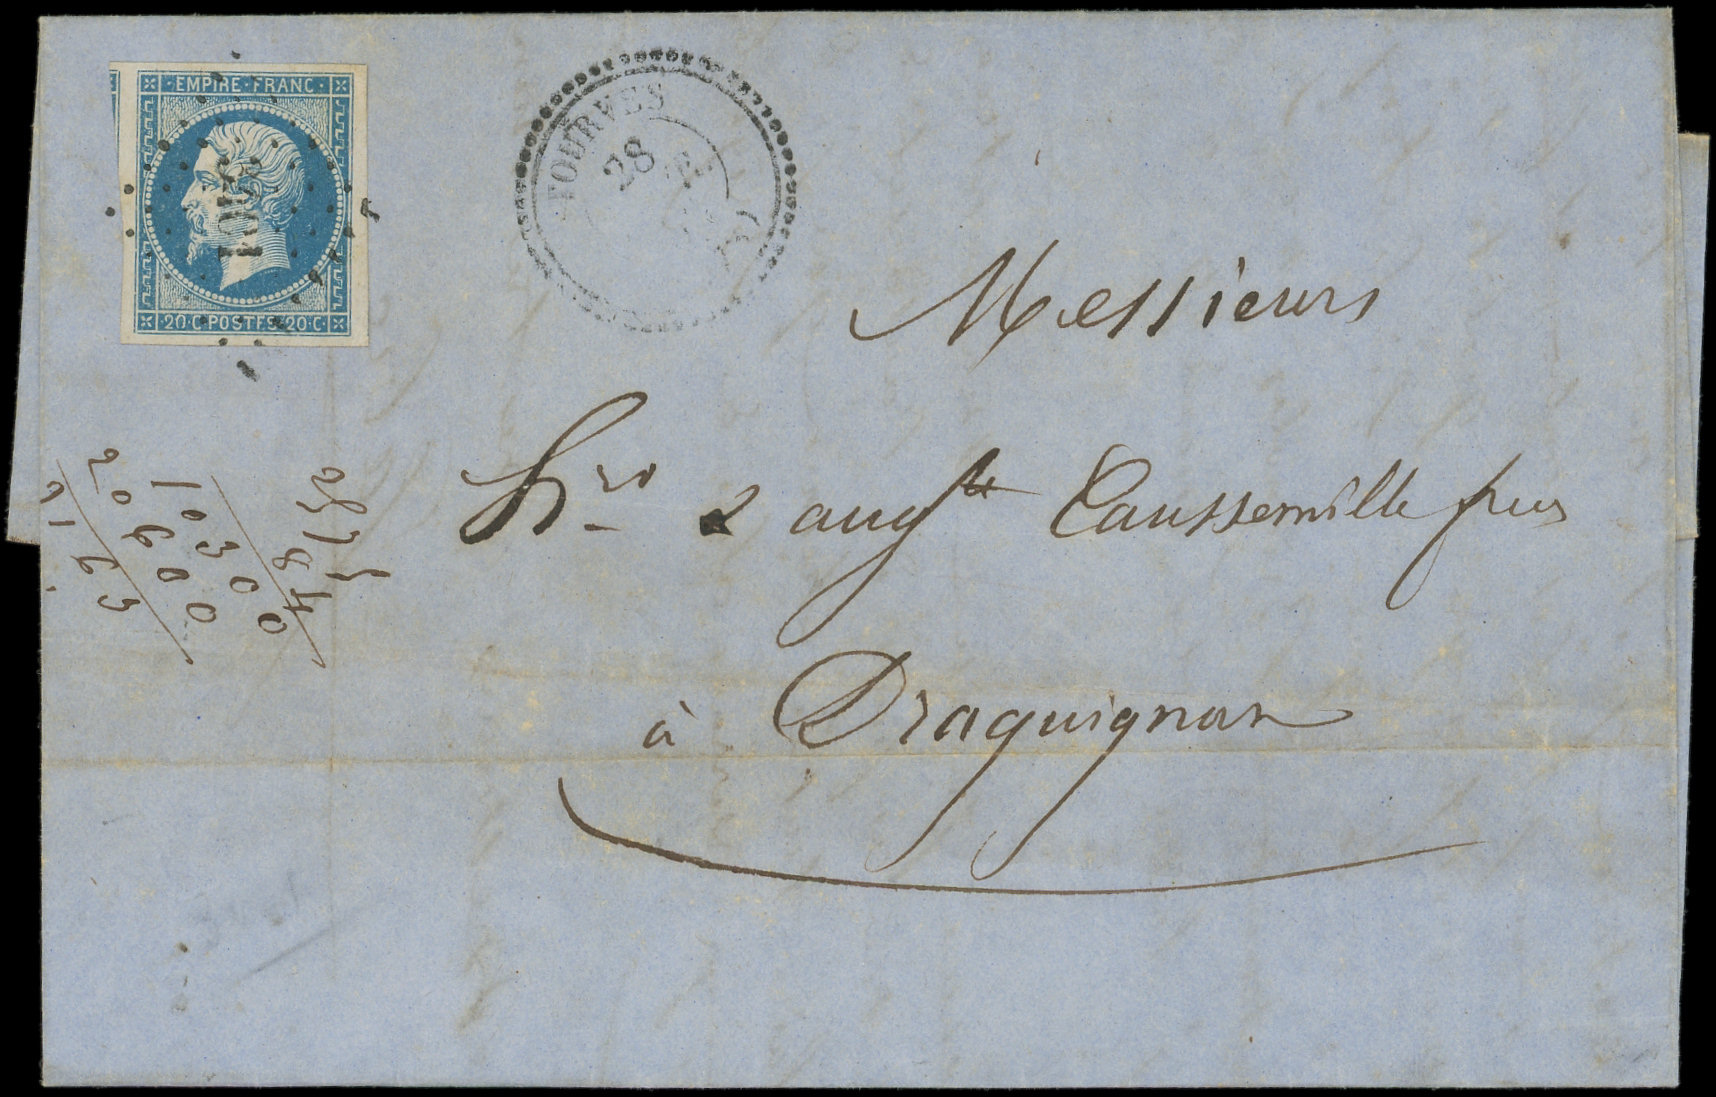 EMPIRE·FRANC·
1003
20·C·POSTES·20·C·
TOURVES
28
Messieurs
hrs & augte Caussemille frères
à Draguignan
10300
20600